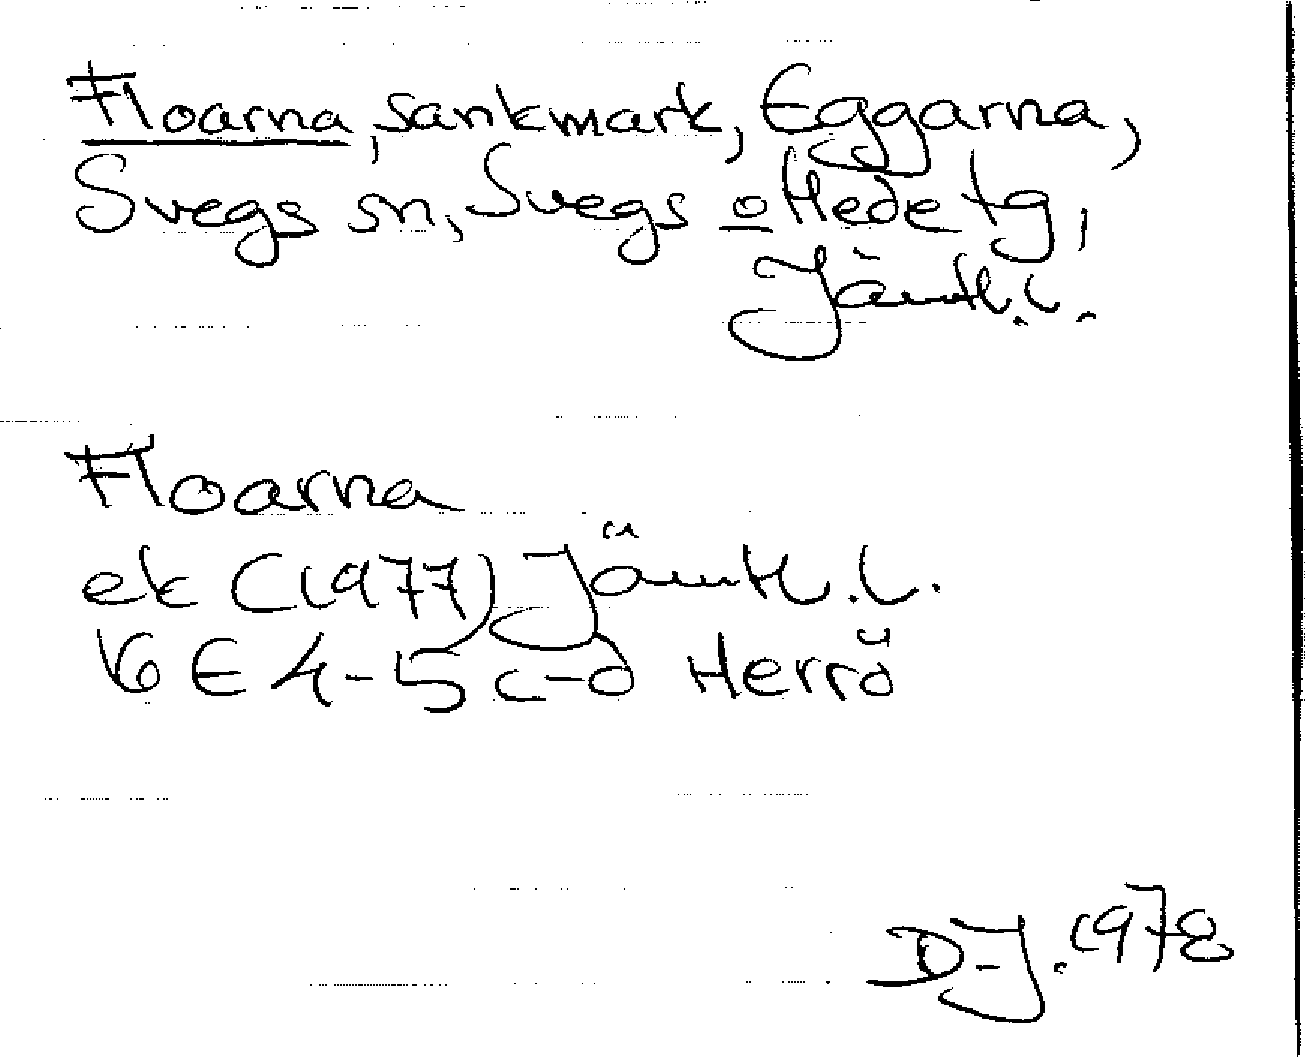 Floarna, sankmark, Eggarna,
Svegs sn, Svegs o Hede tg,
Jämtl. l.
Floarna
ek (1977) Jämtl. l.
16 E 4-5 c-d Herrö
D-J. 1978